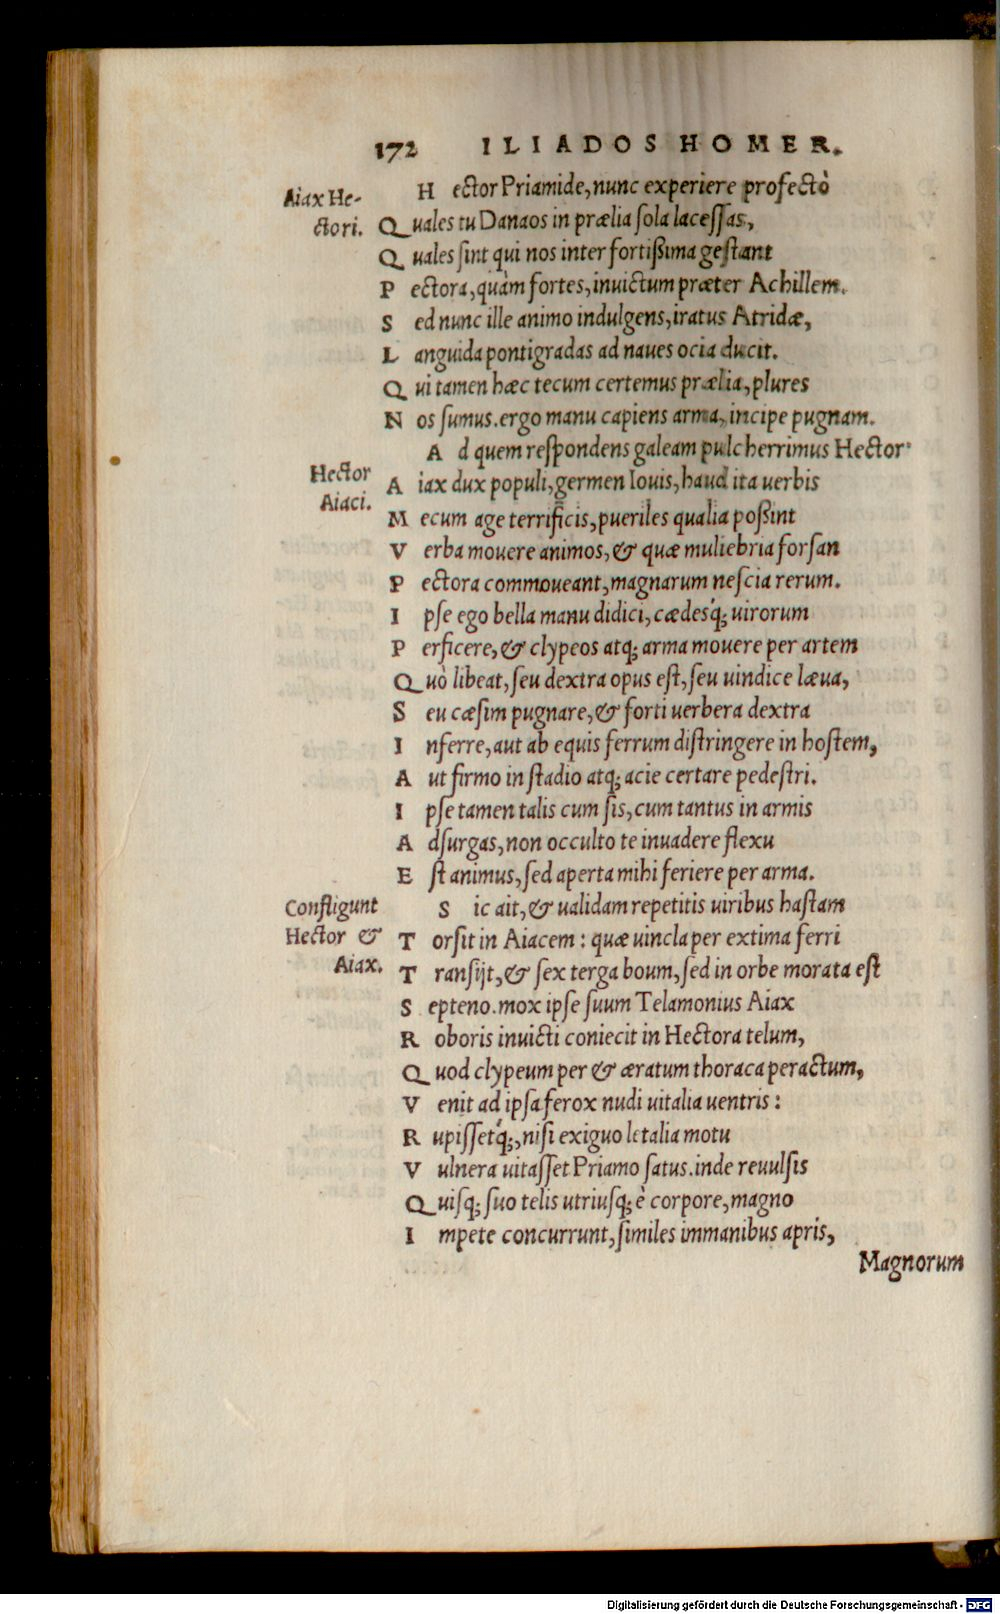 172 ILIADOS HOMER.
Aiax He-
ctori.
Hector Priamide, nunc experiere profectò
Quales tu Danaos in prælia sola lacessas,
Quales sint qui nos inter fortißima gestant
Pectora, quàm fortes, inuictum præter Achillem.
Sed nunc ille animo indulgens, iratus Atridæ,
Languida pontigradas ad naues ocia ducit.
Qui tamen hæc tecum certemus prælia, plures
Nos sumus. ergo manu capiens arma, incipe pugnam.
Ad quem respondens galeam pulcherrimus Hector·
Hector
Aiaci.
Aiax dux populi, germen Iouis, haud ita uerbis
Mecum age terrificis, pueriles qualia poßint
Verba mouere animos, & quæ muliebria forsan
Pectora commoueant, magnarum nescia rerum.
Ipse ego bella manu didici, cædesq́; uirorum
Perficere, & clypeos atq; arma mouere per artem
Quò libeat, seu dextra opus est, seu uindice læua,
Seu cæsim pugnare, & forti uerbera dextra
Inferre, aut ab equis ferrum distringere in hostem,
Aut firmo in stadio atq; acie certare pedestri.
Ipse tamen talis cum sis, cum tantus in armis
Adsurgas, non occulto te inuadere flexu
Est animus, sed aperta mihi feriere per arma.
Confligunt
Hector &
Aiax.
Sic ait, & ualidam repetitis uiribus hastam
Torsit in Aiacem: quæ uincla per extima ferri
Transijt, & sex terga boum, sed in orbe morata est
Septeno. mox ipse suum Telamonius Aiax
Roboris inuicti coniecit in Hectora telum,
Quod clypeum per & æratum thoraca peractum,
Venit ad ipsa ferox nudi uitalia uentris:
Rupissetq́;, nisi exiguo letalia motu
Vulnera uitasset Priamo satus. inde reuulsis
Quisq; suo telis utriusq; è corpore, magno
Impete concurrunt, similes immanibus apris,
Magnorum
Digitalisierung gefördert durch die Deutsche Forschungsgemeinschaft - DFG